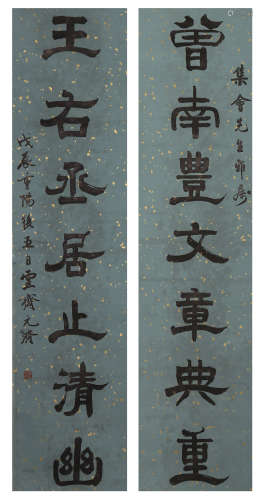 集會先生雅屬
曾南豐文章典重
王右丞居止清幽
戊辰重陽後五日